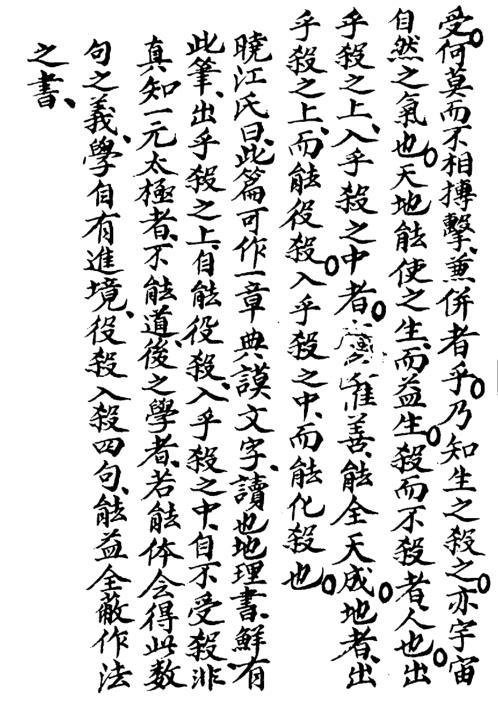 受。何莫而不相搏擊、兼併者乎。乃知生之殺之。亦宇宙
自然之氣也。天地能使之生、而益生。殺而不殺者、人也。出
乎殺之上、入乎殺之中者。惟善、能全天。成地者、出
乎殺之上、而能役殺。入乎殺之中、而能化殺也。
曉江氏曰、此篇可作一章典謨文字、讀也地理書、鮮有
此筆、出乎殺之上、自能役殺、入乎殺之中、自不受殺、非
真知一元太極者、不能道、後之學者、若能体会得此数
句之義、學自有進境、役殺入殺四句、能益全蔽作法
之書、